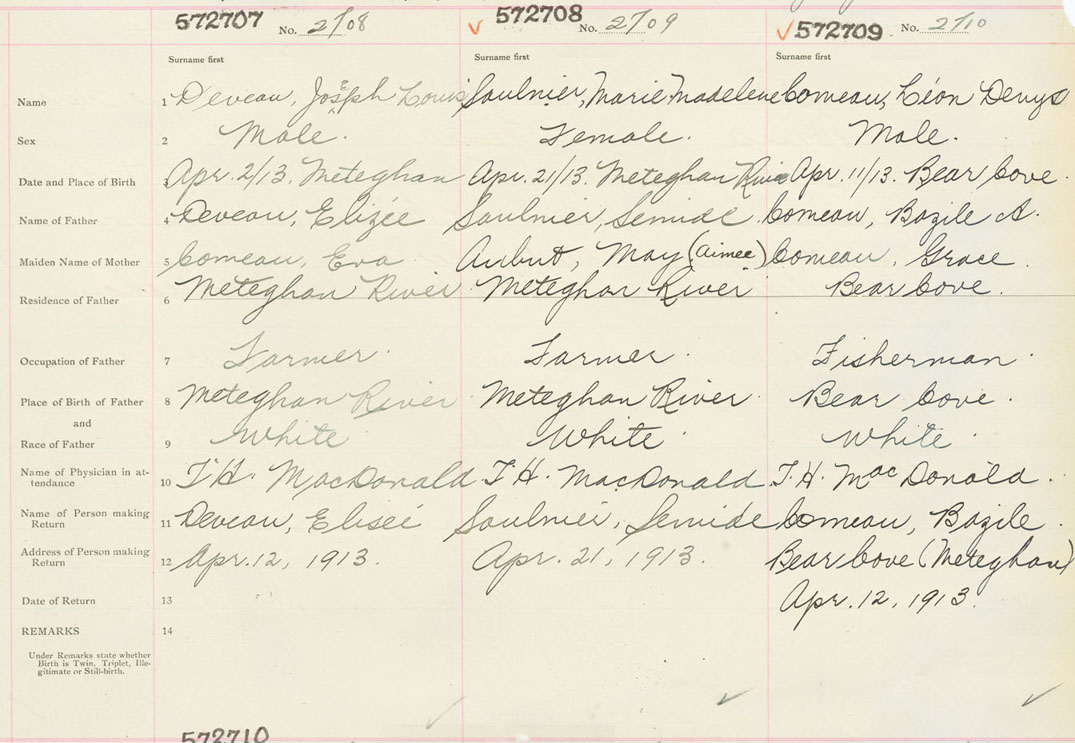 572707 No. 2708 572708 No. 2709 572709 No. 2710
Surname first Surname first Surname first
Name 1 Deveau, Joseph Louis Saulnier, Marie Madelene Comeau, Léon Denys
Sex 2 Male. Female. Male.
Date and Place of Birth 3 Apr. 2/13. Meteghan Apr. 21/13. Meteghan River Apr. 11/13. Bear Cove.
Name of Father 4 Deveau, Elizée Saulnier, Semide Comeau, Bazile A.
Maiden Name of Mother 5 Comeau, Eva Aubut, May (Aimee) Comeau, Grace.
Residence of Father 6 Meteghan River Meteghan River Bear Cove.
Occupation of Father 7 Farmer. Farmer. Fisherman.
Place of Birth of Father 8 Meteghan River. Meteghan River. Bear Cove.
and
Race of Father 9 White. White. White.
Name of Physician in at-
tendance 10 T. H. MacDonald T. H. MacDonald T. H. MacDonald.
Name of Person making
Return 11 Deveau, Eliseé Saulnier, Semide Comeau, Bazile.
Address of Person making
Return 12 Apr. 12, 1913. Apr. 21, 1913. Bear Cove (Meteghan)
Date of Return 13 Apr. 12, 1913.
REMARKS 14
Under Remarks state whether
Birth is Twin, Triplet, Ille-
gitimate or Still-birth.
572710